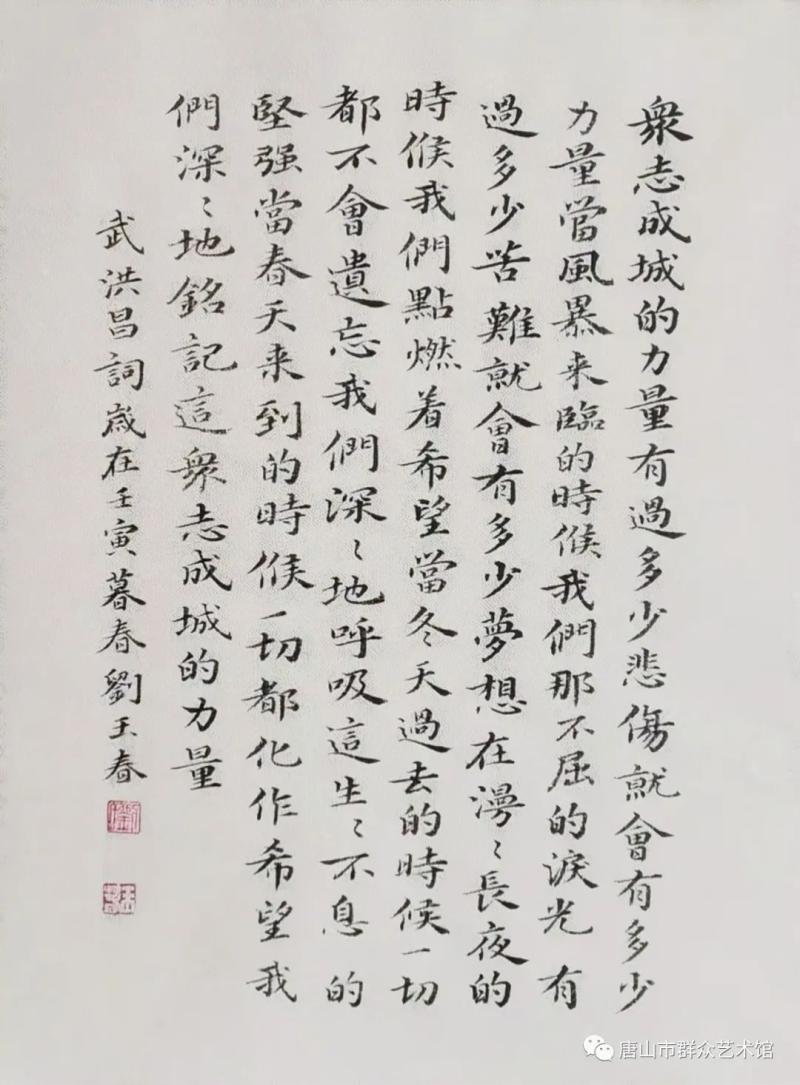 衆志成城的力量有過多少悲傷就會有多少
力量當風暴来臨的時候我們那不屈的淚光有
過多少苦難就會有多少夢想在漫〻長夜的
時候我們點燃着希望當冬天過去的時候一切
都不會遺忘我們深〻地呼吸這生〻不息的
堅强當春天来到的時候一切都化作希望我
們深〻地銘記這衆志成城的力量
武洪昌詞歲在壬寅暮春劉玉春
唐山市群众艺术馆